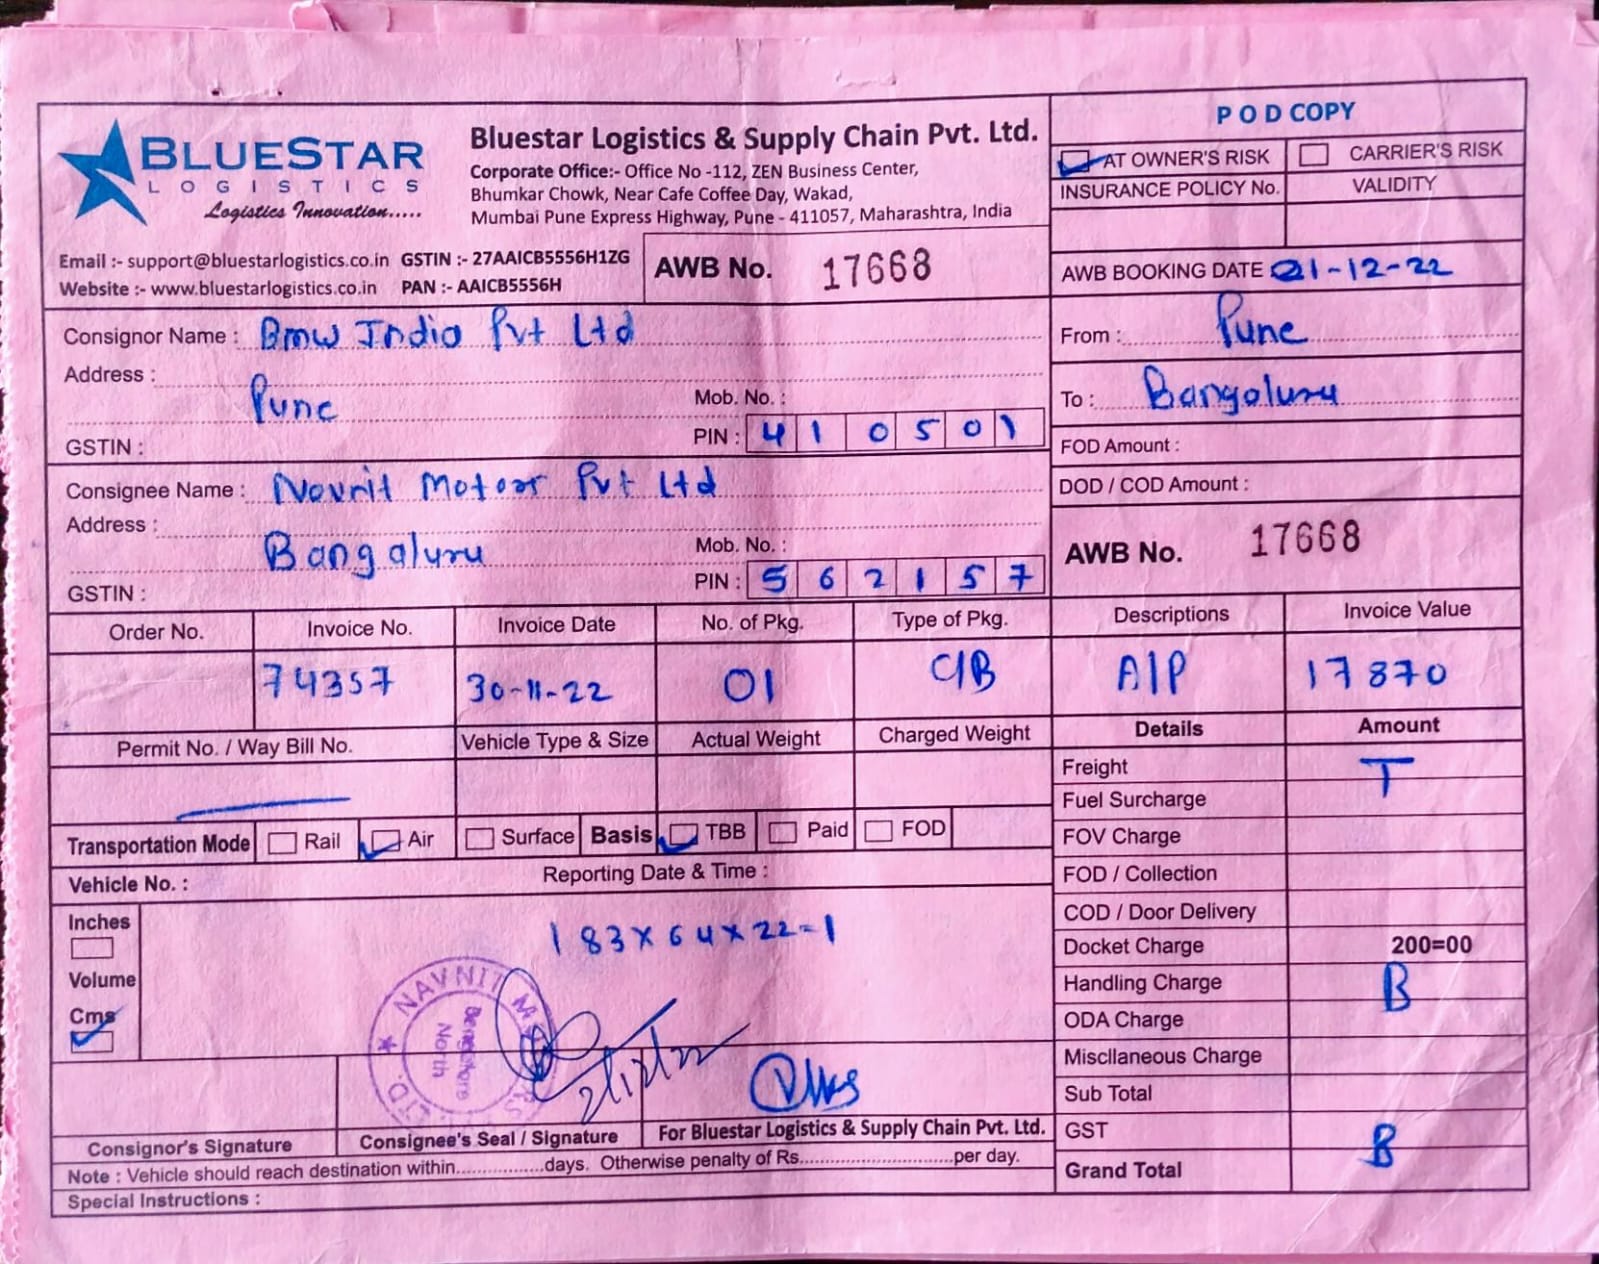 BLUESTAR
LOGISTICS
Logistics Innovation.....
Bluestar Logistics & Supply Chain Pvt. Ltd.
Corporate Office:- Office No -112, ZEN Business Center,
Bhumkar Chowk, Near Cafe Coffee Day, Wakad,
Mumbai Pune Express Highway, Pune - 411057, Maharashtra, India
Email :- support@bluestarlogistics.co.in GSTIN :- 27AAICB5556H1ZG
Website :- www.bluestarlogistics.co.in PAN :- AAICB5556H
AWB No. 17668
POD COPY
AT OWNER'S RISK CARRIER'S RISK
INSURANCE POLICY No. VALIDITY
AWB BOOKING DATE 01-12-22
From : Pune
To : Bangaluru
FOD Amount :
DOD / COD Amount :
AWB No. 17668
Consignor Name : Bmw India Pvt Ltd
Address :
Pune Mob. No. :
GSTIN : PIN : 410501
Consignee Name : Navnit Motoor Pvt Ltd
Address :
Bangaluru Mob. No. :
GSTIN : PIN : 562157
Order No. Invoice No. Invoice Date No. of Pkg. Type of Pkg. Descriptions Invoice Value
74357 30-11-22 01 C/B A/P 17870
Permit No. / Way Bill No. Vehicle Type & Size Actual Weight Charged Weight
Transportation Mode Rail Air Surface Basis TBB Paid FOD
Vehicle No. : Reporting Date & Time :
Inches
Volume
Cms
183X64X22=1
NAVNIT
Bangalore
North
LTD.
2/12/22
Consignor's Signature Consignee's Seal / Signature For Bluestar Logistics & Supply Chain Pvt. Ltd.
Note : Vehicle should reach destination within.................days. Otherwise penalty of Rs..............................per day.
Special Instructions :
Details Amount
Freight T
Fuel Surcharge
FOV Charge
FOD / Collection
COD / Door Delivery
Docket Charge 200=00
Handling Charge B
ODA Charge
Miscllaneous Charge
Sub Total
GST B
Grand Total